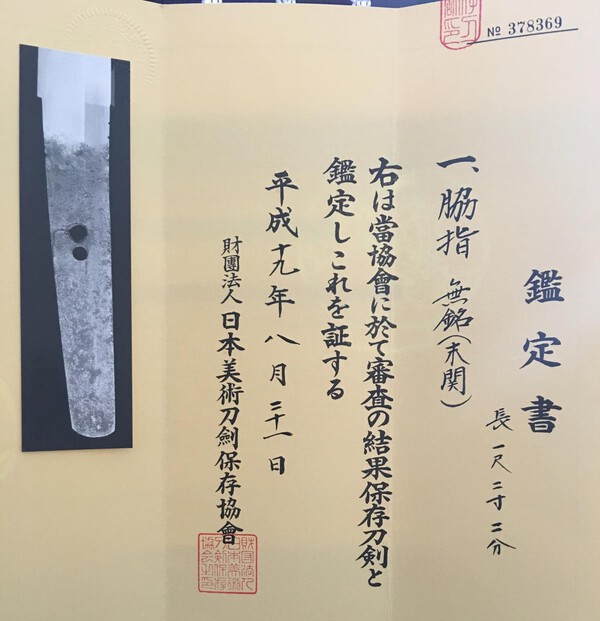 № 378369
鑑定書
一、脇指 無銘(末関)
長一尺二寸二分
右は當協會に於て審査の結果保存刀剣と
鑑定しこれを証する
平成十九年八月二十一日
財團法人日本美術刀劍保存協會